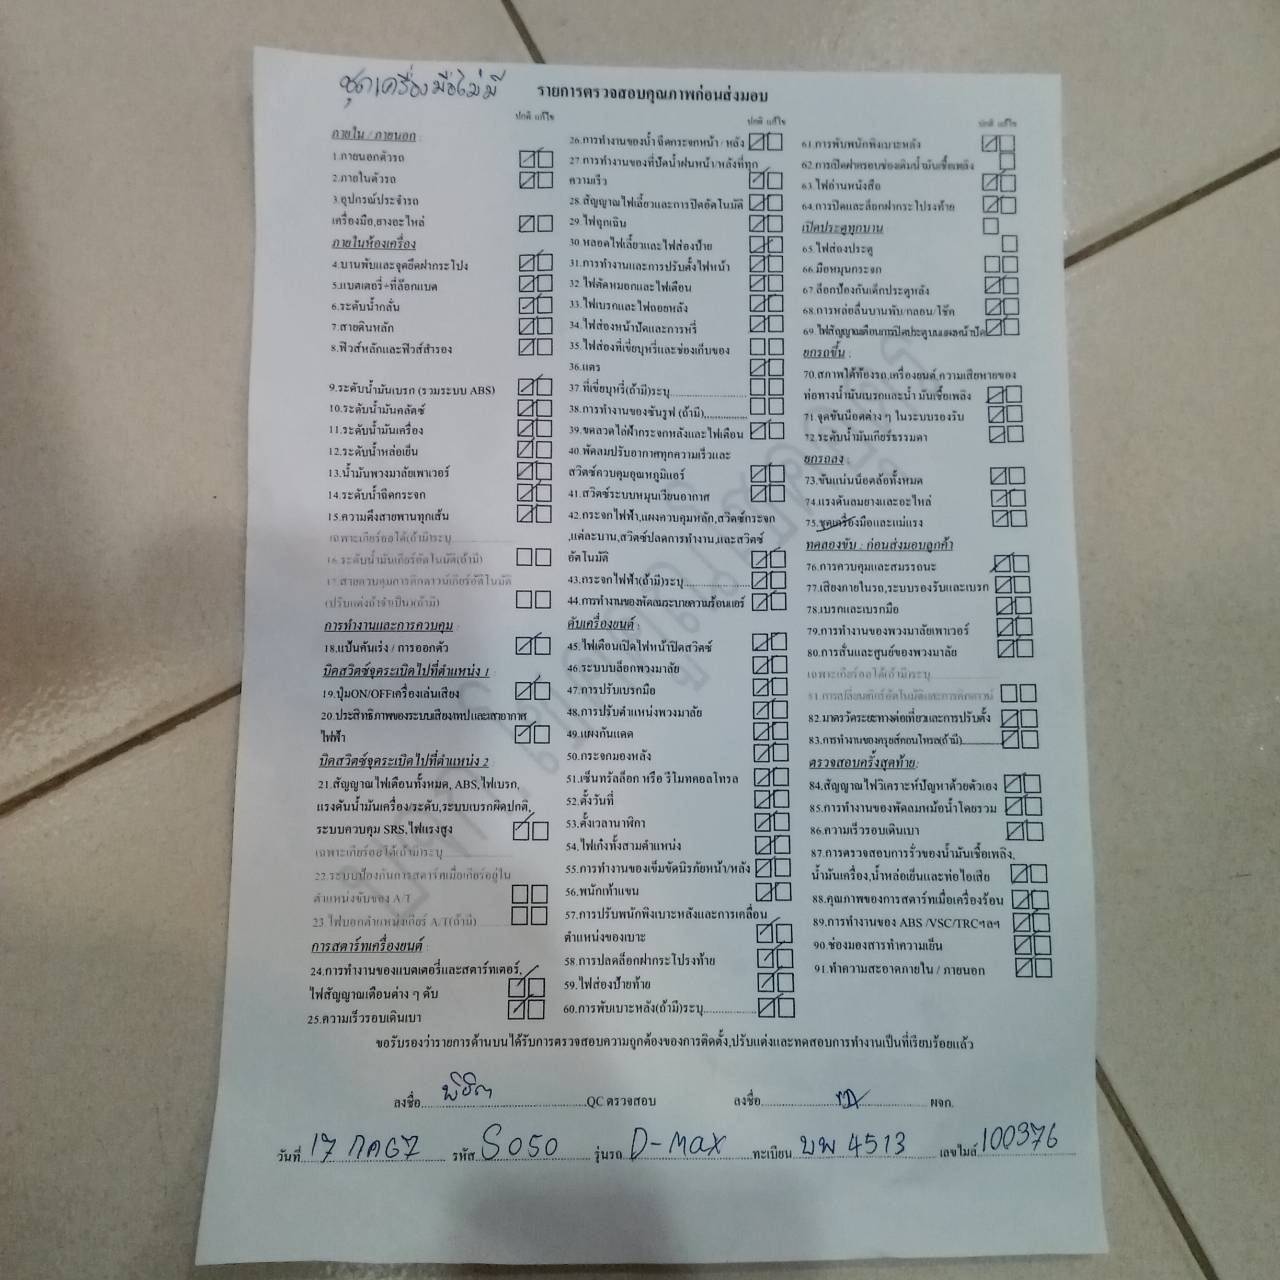 ชุดเครื่องมือไม่มี
รายการตรวจสอบคุณภาพก่อนส่งมอบ
ปกติ แก้ไข
ภายใน / ภายนอก :
1.ภายนอกตัวรถ
2.ภายในตัวรถ
3.อุปกรณ์ประจำรถ
เครื่องมือ,ยางอะไหล่
ภายในห้องเครื่อง
4.บานพับและจุดยึดฝากระโปง
5.แบตเตอรี่+ที่ล็อกแบต
6.ระดับน้ำกลั่น
7.สายดินหลัก
8.ฟิวส์หลักและฟิวส์สำรอง
9.ระดับน้ำมันเบรก (รวมระบบ ABS)
10.ระดับน้ำมันคลัตช์
11.ระดับน้ำมันเครื่อง
12.ระดับน้ำหล่อเย็น
13.น้ำมันพวงมาลัยเพาเวอร์
14.ระดับน้ำฉีดกระจก
15.ความตึงสายพานทุกเส้น
เฉพาะเกียร์ออโต้(ถ้ามี)ระบุ
16.ระดับน้ำมันเกียร์อัตโนมัติ(ถ้ามี)
(ปรับแต่งถ้าจำเป็น)(ถ้ามี)
การทำงานและการควบคุม :
18.แป้นคันเร่ง / การออกตัว
บิดสวิตซ์จุดระเบิดไปที่ตำแหน่ง 1
19.ปุ่มON/OFFเครื่องเล่นเสียง
20.ประสิทธิภาพของระบบเสียงเทปและเสาอากาศ
ไฟฟ้า
บิดสวิตซ์จุดระเบิดไปที่ตำแหน่ง 2
21.สัญญาณไฟเตือนทั้งหมด, ABS,ไฟเบรก,
แรงดันน้ำมันเครื่อง/ระดับ,ระบบเบรกผิดปกติ,
ระบบควบคุม SRS,ไฟแรงสูง
เฉพาะเกียร์ออโต้(ถ้ามี)ระบุ
22.ระบบป้องกันการสตาร์ทเมื่อเกียร์อยู่ใน
ตำแหน่งขับของ A/T
23.ไฟบอกตำแหน่งเกียร์ A/T(ถ้ามี)
การสตาร์ทเครื่องยนต์ :
24.การทำงานของแบตเตอรี่และสตาร์ทเตอร์,
ไฟสัญญาณเตือนต่าง ๆ ดับ
25.ความเร็วรอบเดินเบา
ปกติ แก้ไข
26.การทำงานของน้ำฉีดกระจกหน้า / หลัง
27.การทำงานของที่ปัดน้ำฝนหน้า/หลังที่ทุก
ความเร็ว
28.สัญญาณไฟเลี้ยวและการปิดอัตโนมัติ
29.ไฟฉุกเฉิน
30.หลอดไฟเลี้ยวและไฟส่องป้าย
31.การทำงานและการปรับตั้งไฟหน้า
32.ไฟตัดหมอกและไฟเตือน
33.ไฟเบรกและไฟถอยหลัง
34.ไฟส่องหน้าปัดและการหรี่
35.ไฟส่องที่เขี่ยบุหรี่และช่องเก็บของ
36.แตร
37.ที่เขี่ยบุหรี่(ถ้ามี)ระบุ
38.การทำงานของซันรูฟ (ถ้ามี)
39.ขดลวดไล่ฝ้ากระจกหลังและไฟเตือน
40.พัดลมปรับอากาศทุกความเร็วและ
สวิตซ์ควบคุมอุณหภูมิแอร์
41.สวิตซ์ระบบหมุนเวียนอากาศ
42.กระจกไฟฟ้า,แผงควบคุมหลัก,สวิตซ์กระจก
,แต่ละบาน,สวิตซ์ปลดการทำงาน,และสวิตซ์
อัตโนมัติ
43.กระจกไฟฟ้า(ถ้ามี)ระบุ
44.การทำงานของพัดลมระบายความร้อนแอร์
ดับเครื่องยนต์ :
45.ไฟเตือนเปิดไฟหน้าปิดสวิตซ์
46.ระบบล็อกพวงมาลัย
47.การปรับเบรกมือ
48.การปรับตำแหน่งพวงมาลัย
49.แผงกันแดด
50.กระจกมองหลัง
51.เซ็นทรัลล็อก หรือ รีโมทคอลโทรล
52.ตั้งวันที่
53.ตั้งเวลานาฬิกา
54.ไฟเก๋งทั้งสามตำแหน่ง
55.การทำงานของเข็มขัดนิรภัยหน้า/หลัง
56.พนักเท้าแขน
57.การปรับพนักพิงเบาะหลังและการเคลื่อน
ตำแหน่งของเบาะ
58.การปลดล็อกฝากระโปรงท้าย
59.ไฟส่องป้ายท้าย
60.การพับเบาะหลัง(ถ้ามี)ระบุ
ปกติ แก้ไข
61.การพับพนักพิงเบาะหลัง
62.การเปิดฝาครอบช่องเติมน้ำมันเชื้อเพลิง
63.ไฟอ่านหนังสือ
64.การปิดและล็อกฝากระโปรงท้าย
เปิดประตูทุกบาน
65.ไฟส่องประตู
66.มือหมุนกระจก
67.ล็อกป้องกันเด็กประตูหลัง
68.การหล่อลื่นบานพับ/กลอน/โช๊ค
69.ไฟสัญญาณเตือนการปิดประตูบนแผงหน้าปัด
ยกรถขึ้น :
70.สภาพใต้ท้องรถ,เครื่องยนต์,ความเสียหายของ
ท่อทางน้ำมันเบรกและน้ำมันเชื้อเพลิง
71.จุดขันน็อตต่าง ๆ ในระบบรองรับ
72.ระดับน้ำมันเกียร์ธรรมดา
ยกรถลง :
73.ขันแน่นน็อตล้อทั้งหมด
74.แรงดันลมยางและอะไหล่
75.ชุดเครื่องมือและแม่แรง
ทดลองขับ : ก่อนส่งมอบลูกค้า
76.การควบคุมและสมรรถนะ
77.เสียงภายในรถ,ระบบรองรับและเบรก
78.เบรกและเบรกมือ
79.การทำงานของพวงมาลัยเพาเวอร์
80.การสั่นและศูนย์ของพวงมาลัย
เฉพาะเกียร์ออโต้(ถ้ามี)ระบุ
82.มาตรวัดระยะทางต่อเที่ยวและการปรับตั้ง
83.การทำงานของครุยส์คอนโทรล(ถ้ามี)
ตรวจสอบครั้งสุดท้าย:
84.สัญญาณไฟวิเคราะห์ปัญหาด้วยตัวเอง
85.การทำงานของพัดลมหม้อน้ำโดยรวม
86.ความเร็วรอบเดินเบา
87.การตรวจสอบการรั่วของน้ำมันเชื้อเพลิง,
น้ำมันเครื่อง,น้ำหล่อเย็นและท่อไอเสีย
88.คุณภาพของการสตาร์ทเมื่อเครื่องร้อน
89.การทำงานของ ABS /VSC/TRCฯลฯ
90.ช่องมองสารทำความเย็น
91.ทำความสะอาดภายใน / ภายนอก
ขอรับรองว่ารายการด้านบนได้รับการตรวจสอบความถูกต้องของการติดตั้ง,ปรับแต่งและทดสอบการทำงานเป็นที่เรียบร้อยแล้ว
ลงชื่อ QC ตรวจสอบ ลงชื่อ ผจก.
วันที่ 17 กค67 รหัส S050 รุ่นรถ D-Max ทะเบียน บพ 4513 เลขไมล์ 100376